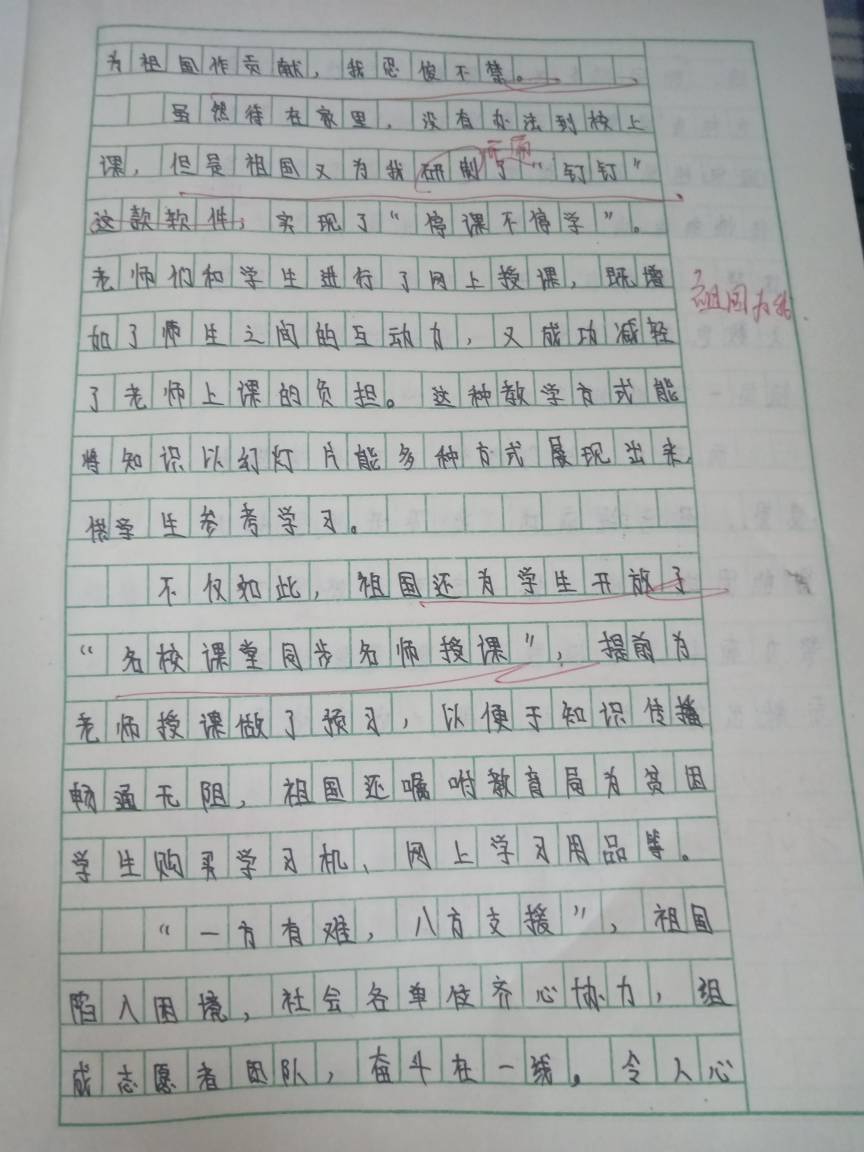 为祖国作贡献，我忍俊不禁。
虽然待在家里，没有办法到校上
课，但是祖国又为我研制了“钉钉”
这款软件，实现了“停课不停学”。
老师们和学生进行了网上授课，既增
加了师生之间的互动力，又成功减轻
了老师上课的负担。这种教学方式能
将知识以幻灯片能多种方式展现出来，
供学生参考学习。
不仅如此，祖国还为学生开放了
“名校课堂同步名师授课”，提前为
老师授课做了预习，以便于知识传播
畅通无阻，祖国还嘱咐教育局为贫困
学生购买学习机、网上学习用品等。
“一方有难，八方支援”，祖国
陷入困境，社会各单位齐心协力，组
成志愿者团队，奋斗在一线。令人心